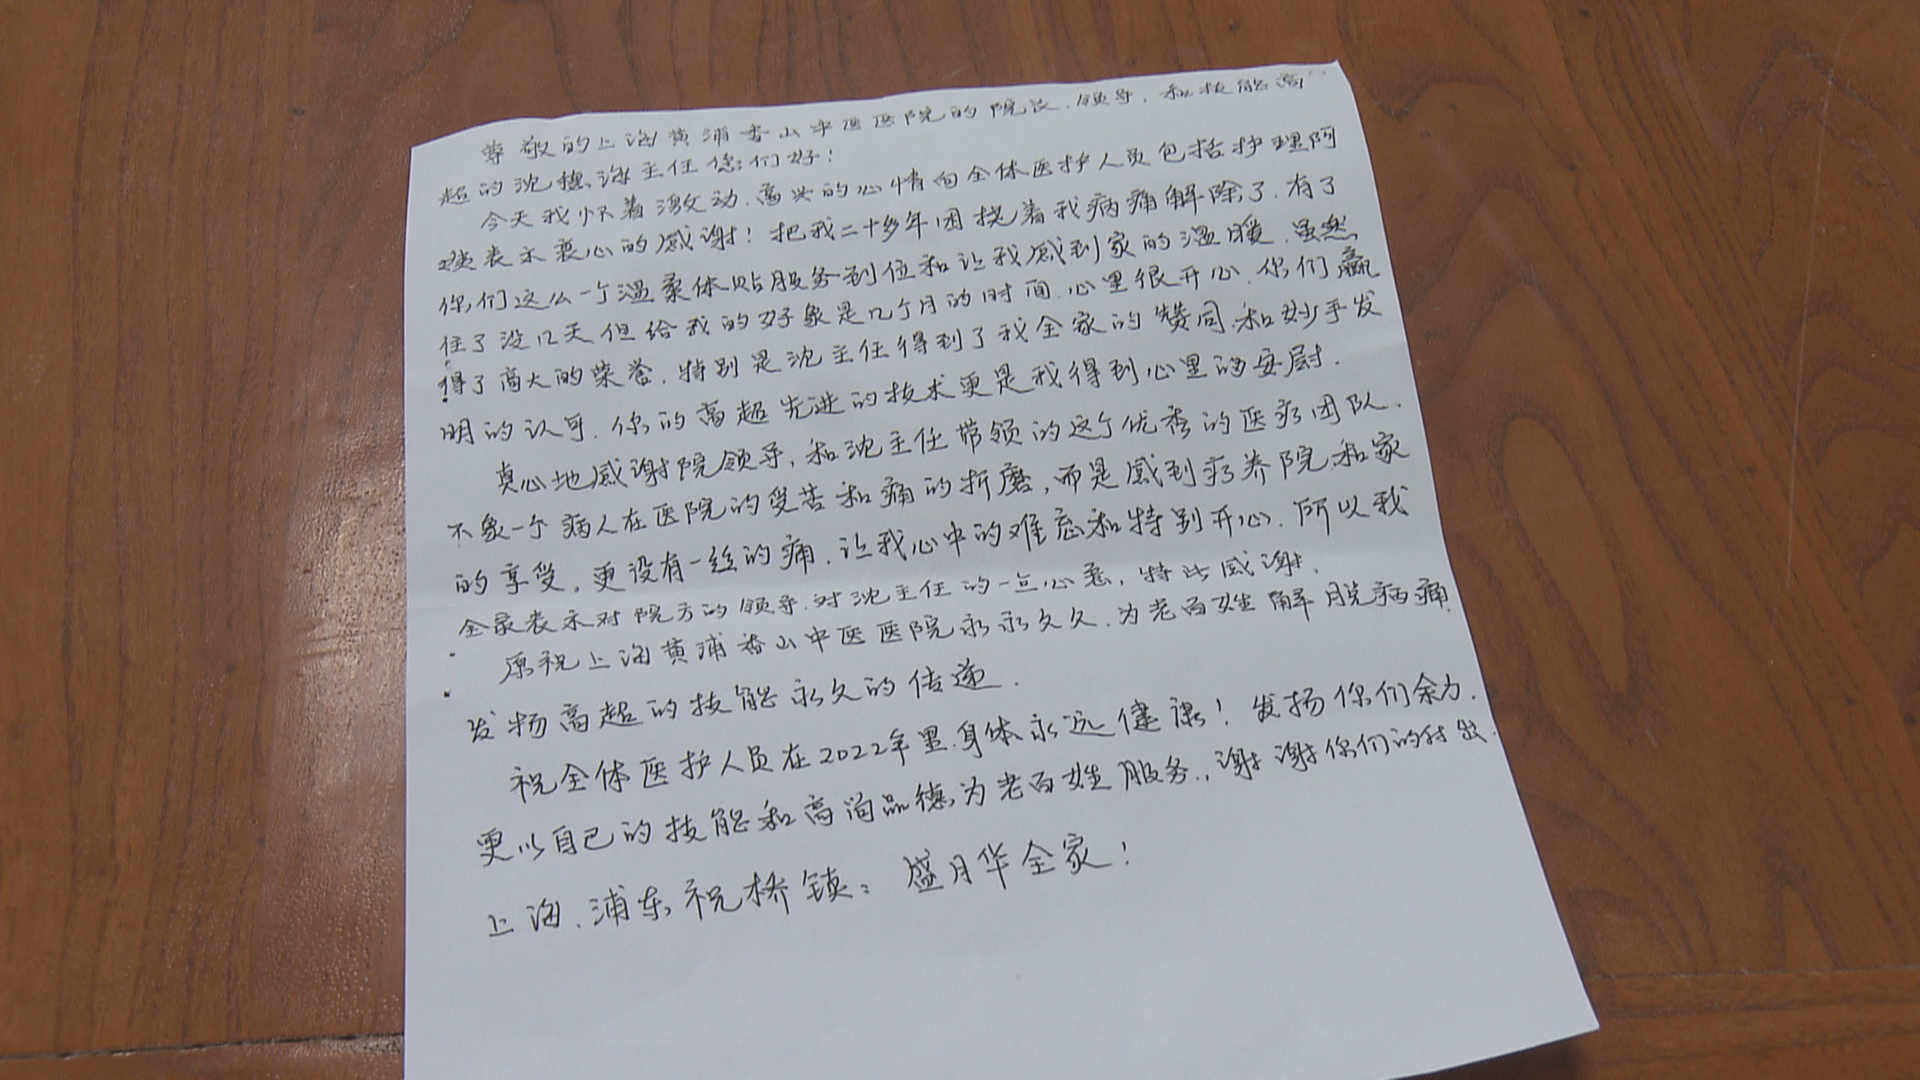 尊敬的上海黄浦香山中医医院的院长.领导,和技能高
超的沈穗海主任您们好!
今天我怀着激动.高兴的心情向全体医护人员包括护理阿
姨表示衷心的感谢!把我二十多年困挠着我病痛解除了.有了
你们这么一个温柔体贴服务到位和让我感到家的温暖.虽然
住了没几天但给我的好象是几个月的时间.心里很开心.你们赢
得了高大的荣誉.特别是沈主任得到了我全家的赞同.和妙手发
明的认可.你的高超先进的技术更是我得到心里的安慰.
真心地感谢院领导,和沈主任带领的这个优秀的医疗团队.
不象一个病人在医院的受苦和痛的折磨,而是感到疗养院.和家
的享受,更没有一丝的痛.让我心中的难忘和特别开心.所以我
全家表示对院方的领导.对沈主任的一点心意,特此感谢.
原祝上海黄浦香山中医医院永永久久.为老百姓解脱病痛
发扬高超的技能永久的传递.
祝全体医护人员在2022年里.身体永远健康!发扬你们余力.
更以自己的技能和高尚品德为老百姓服务.,谢谢你们的付出.
上海.浦东祝桥镇:盛月华全家!